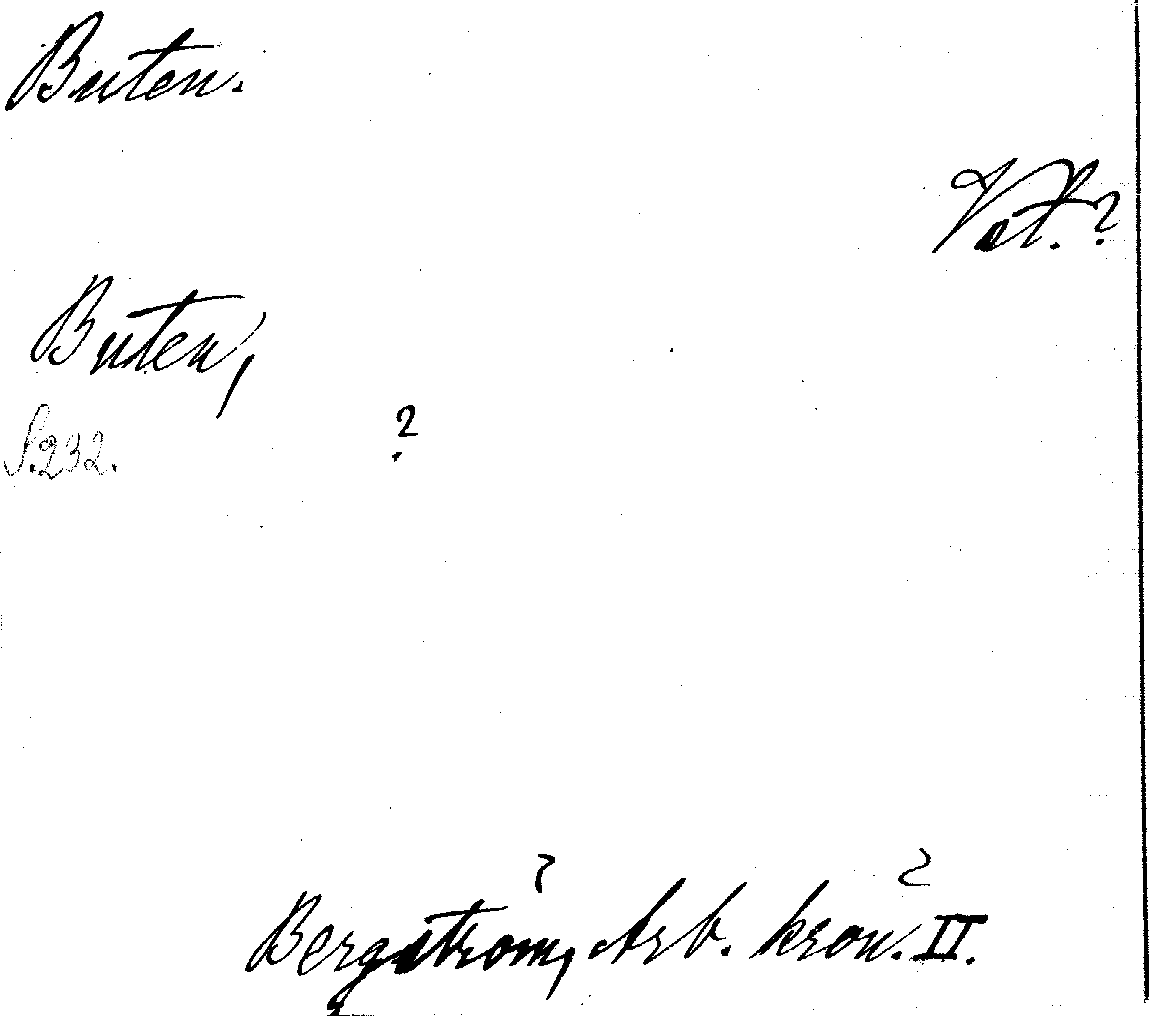 Buten.
Vet.?
Buten,
S. 232.
?
Bergström, Arb. kron. II.